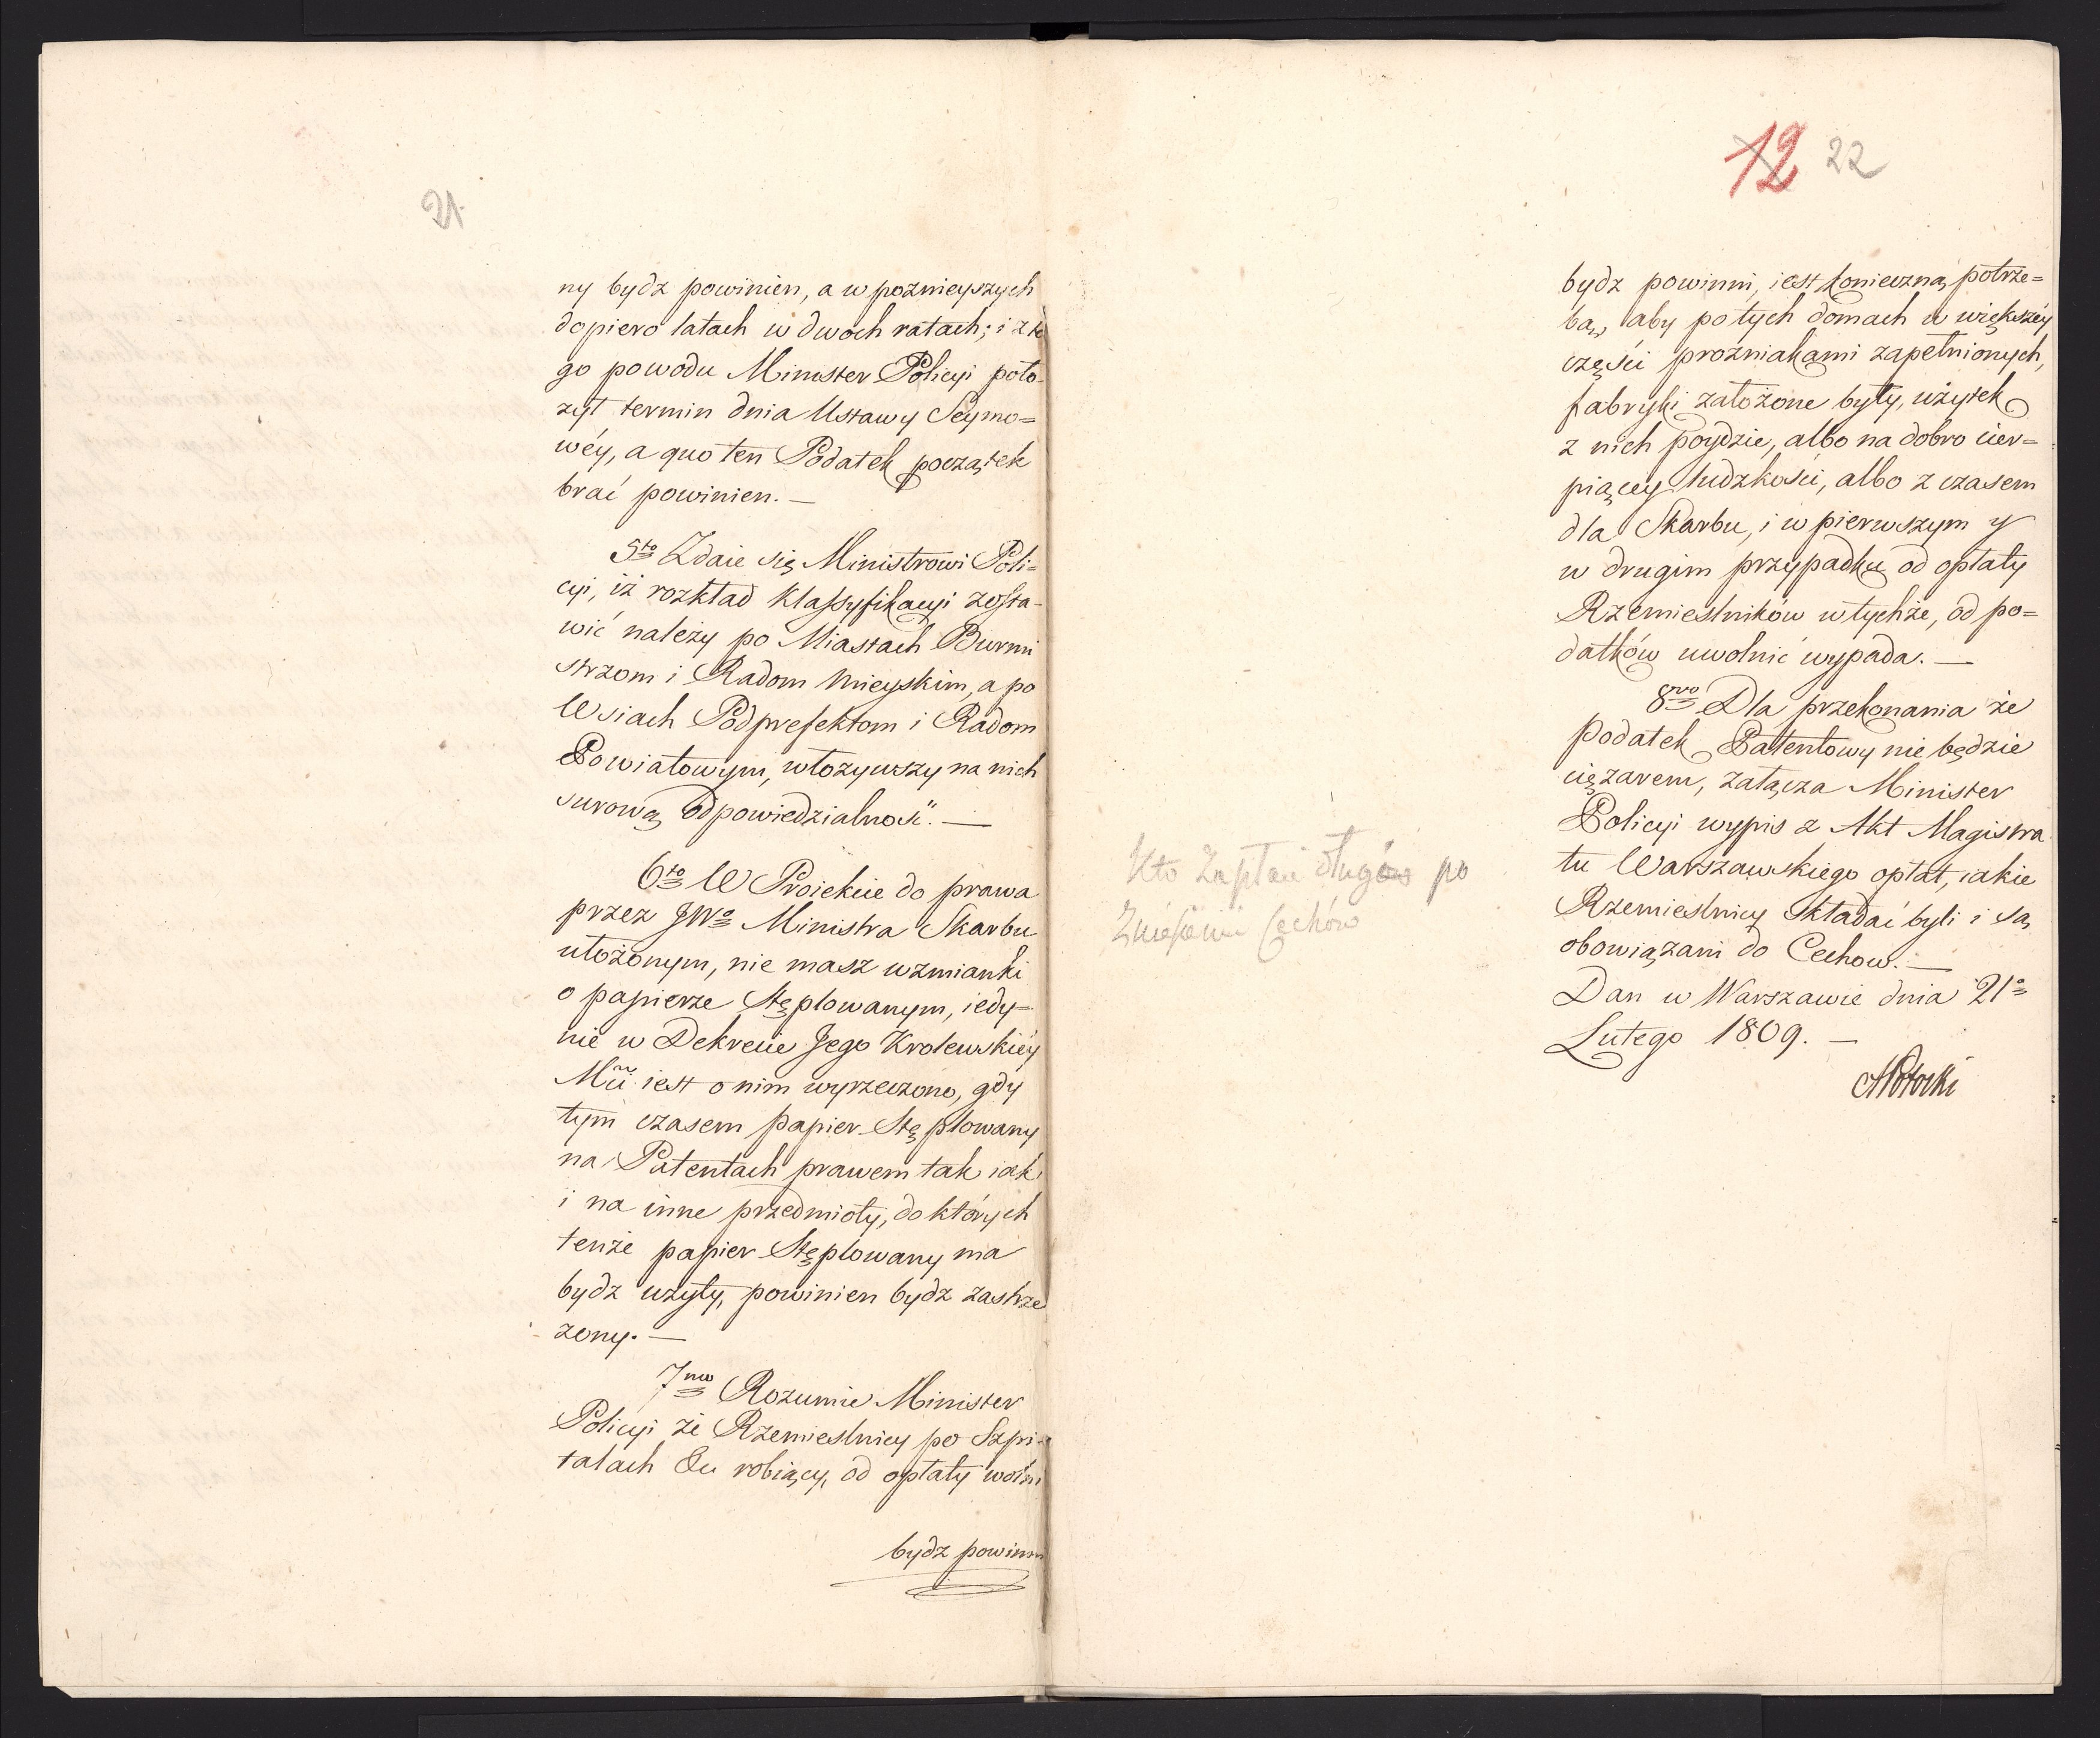 21.
ny bydz powinien, a w poznieyszych
dopiero latach w dwóch ratach; i z te
go powodu Minister Policyi poło-
zył termin dnia Ustawy Seymo=
wéy, a quo ten Podatek początek
brać powinien. —
5to Zdaie się Ministrowi Poli=
cyi, iż rozkład Klassyfikacyi zosta-
wić należy po Miastach Burmi
strzom i Radom Mieyskim, a po
Wsiach Podprefektom i Radom
Powiatowym, włożywszy na nich
surową odpowiedzialność. —
6to W Proiekcie do prawa
przez JWo Ministra Skarbu
ułożonym, nie masz wzmianki
o papierze Stęplowanym, iedy=
nie w Dekrecie Jego Krolewskiéy
Mći iest o nim wyrzeczono, gdy
tym czasem papier Stęplowany
na Patentach prawem tak iak
i na inne przedmioty, do których
tenże papier Stęplowany ma
bydz użyty, powinien bydz zastrze
żony. —
7mo Rozumie Minister
Policyi że Rzemieslnicy po Szpi-
talach robiący, od opłaty wolni
bydz powinni
12 22
bydz powinni, iest konieczną potrze=
bą, aby po tych domach w większéy
części prozniakami zapełnionych,
fabryki założone były, użytek
z nich poydzie, albo na dobro cier=
piącey ludzkości, albo z czasem
dla Skarbu, i w pierwszym y
w drugim przypadku od opłaty
Rzemieslników w tychże, od po=
datków uwolnić wypada. —
8vo Dla przekonania że
Podatek Patentowy nie będzie
ciężarem, załącza Minister
Policyi wypis z Akt Magistra
tu Warszawskiego opłat, iakie
Rzemieslnicy składać byli i są
obowiązani do Cechow. —
Dan w Warszawie dnia 21o
Lutego 1809. —
APotocki
Kto Zapłaci długów po
Zniesieniu Cechów